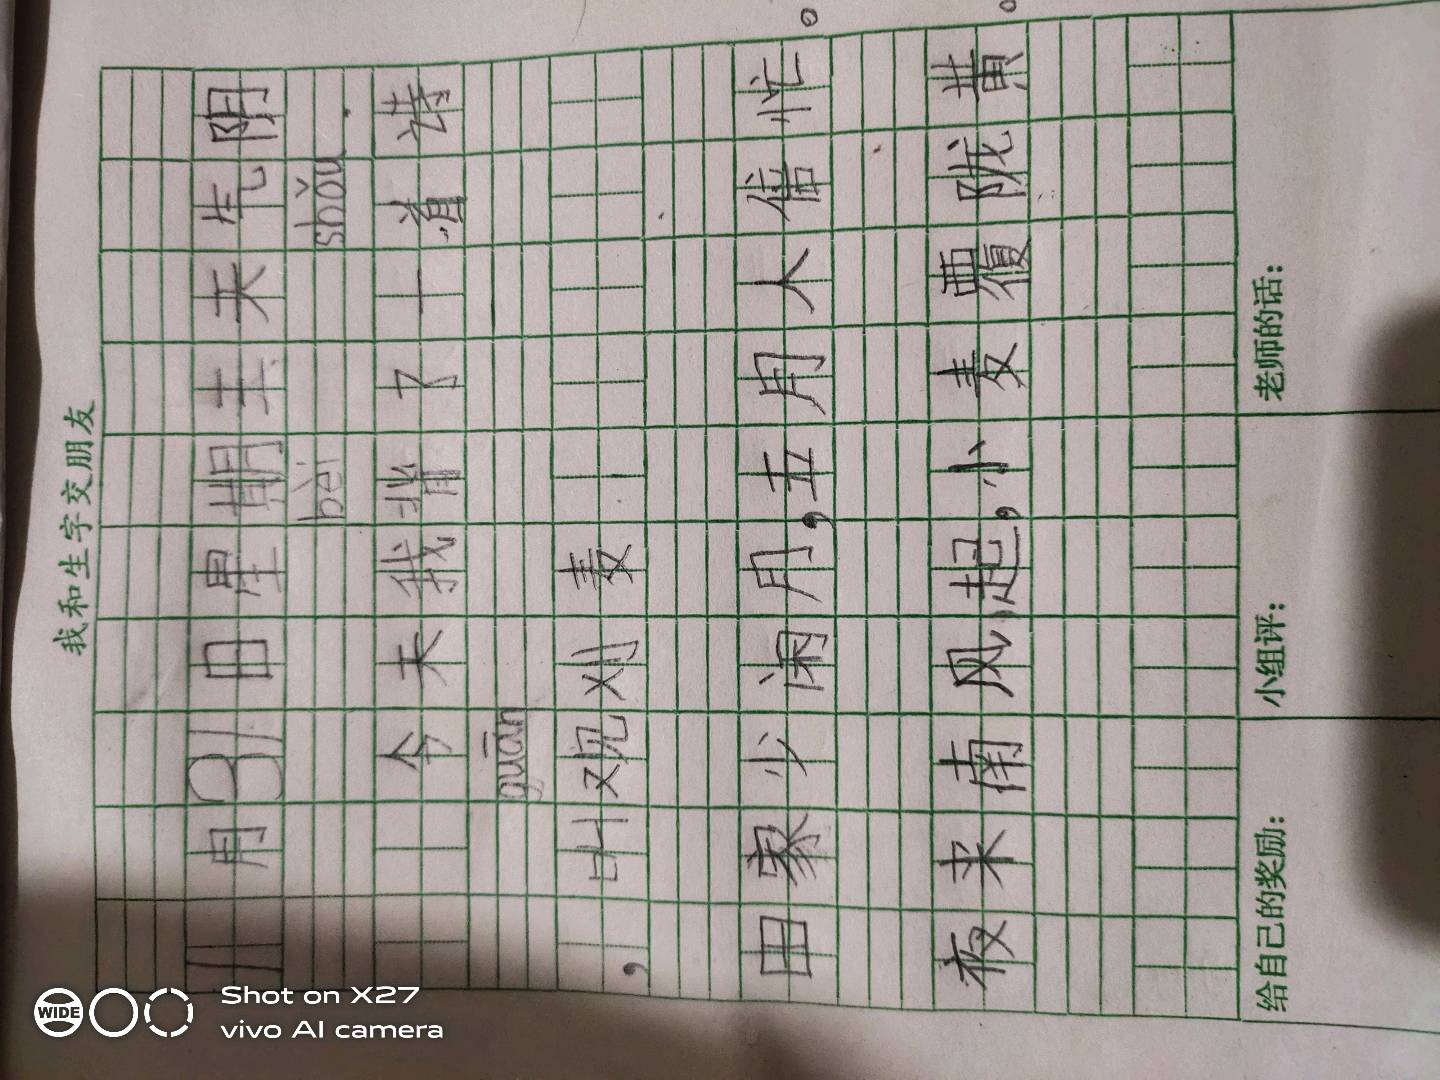 我和生字交朋友
11月31日星期天气阴
bèi shǒu
今天我背了一首诗
guān
,叫观刈麦
田家少闲月,五月人倍忙。
夜来南风起,小麦覆陇黄。
给自己的奖励: 小组评: 老师的话:
WIDE
Shot on X27
vivo AI camera